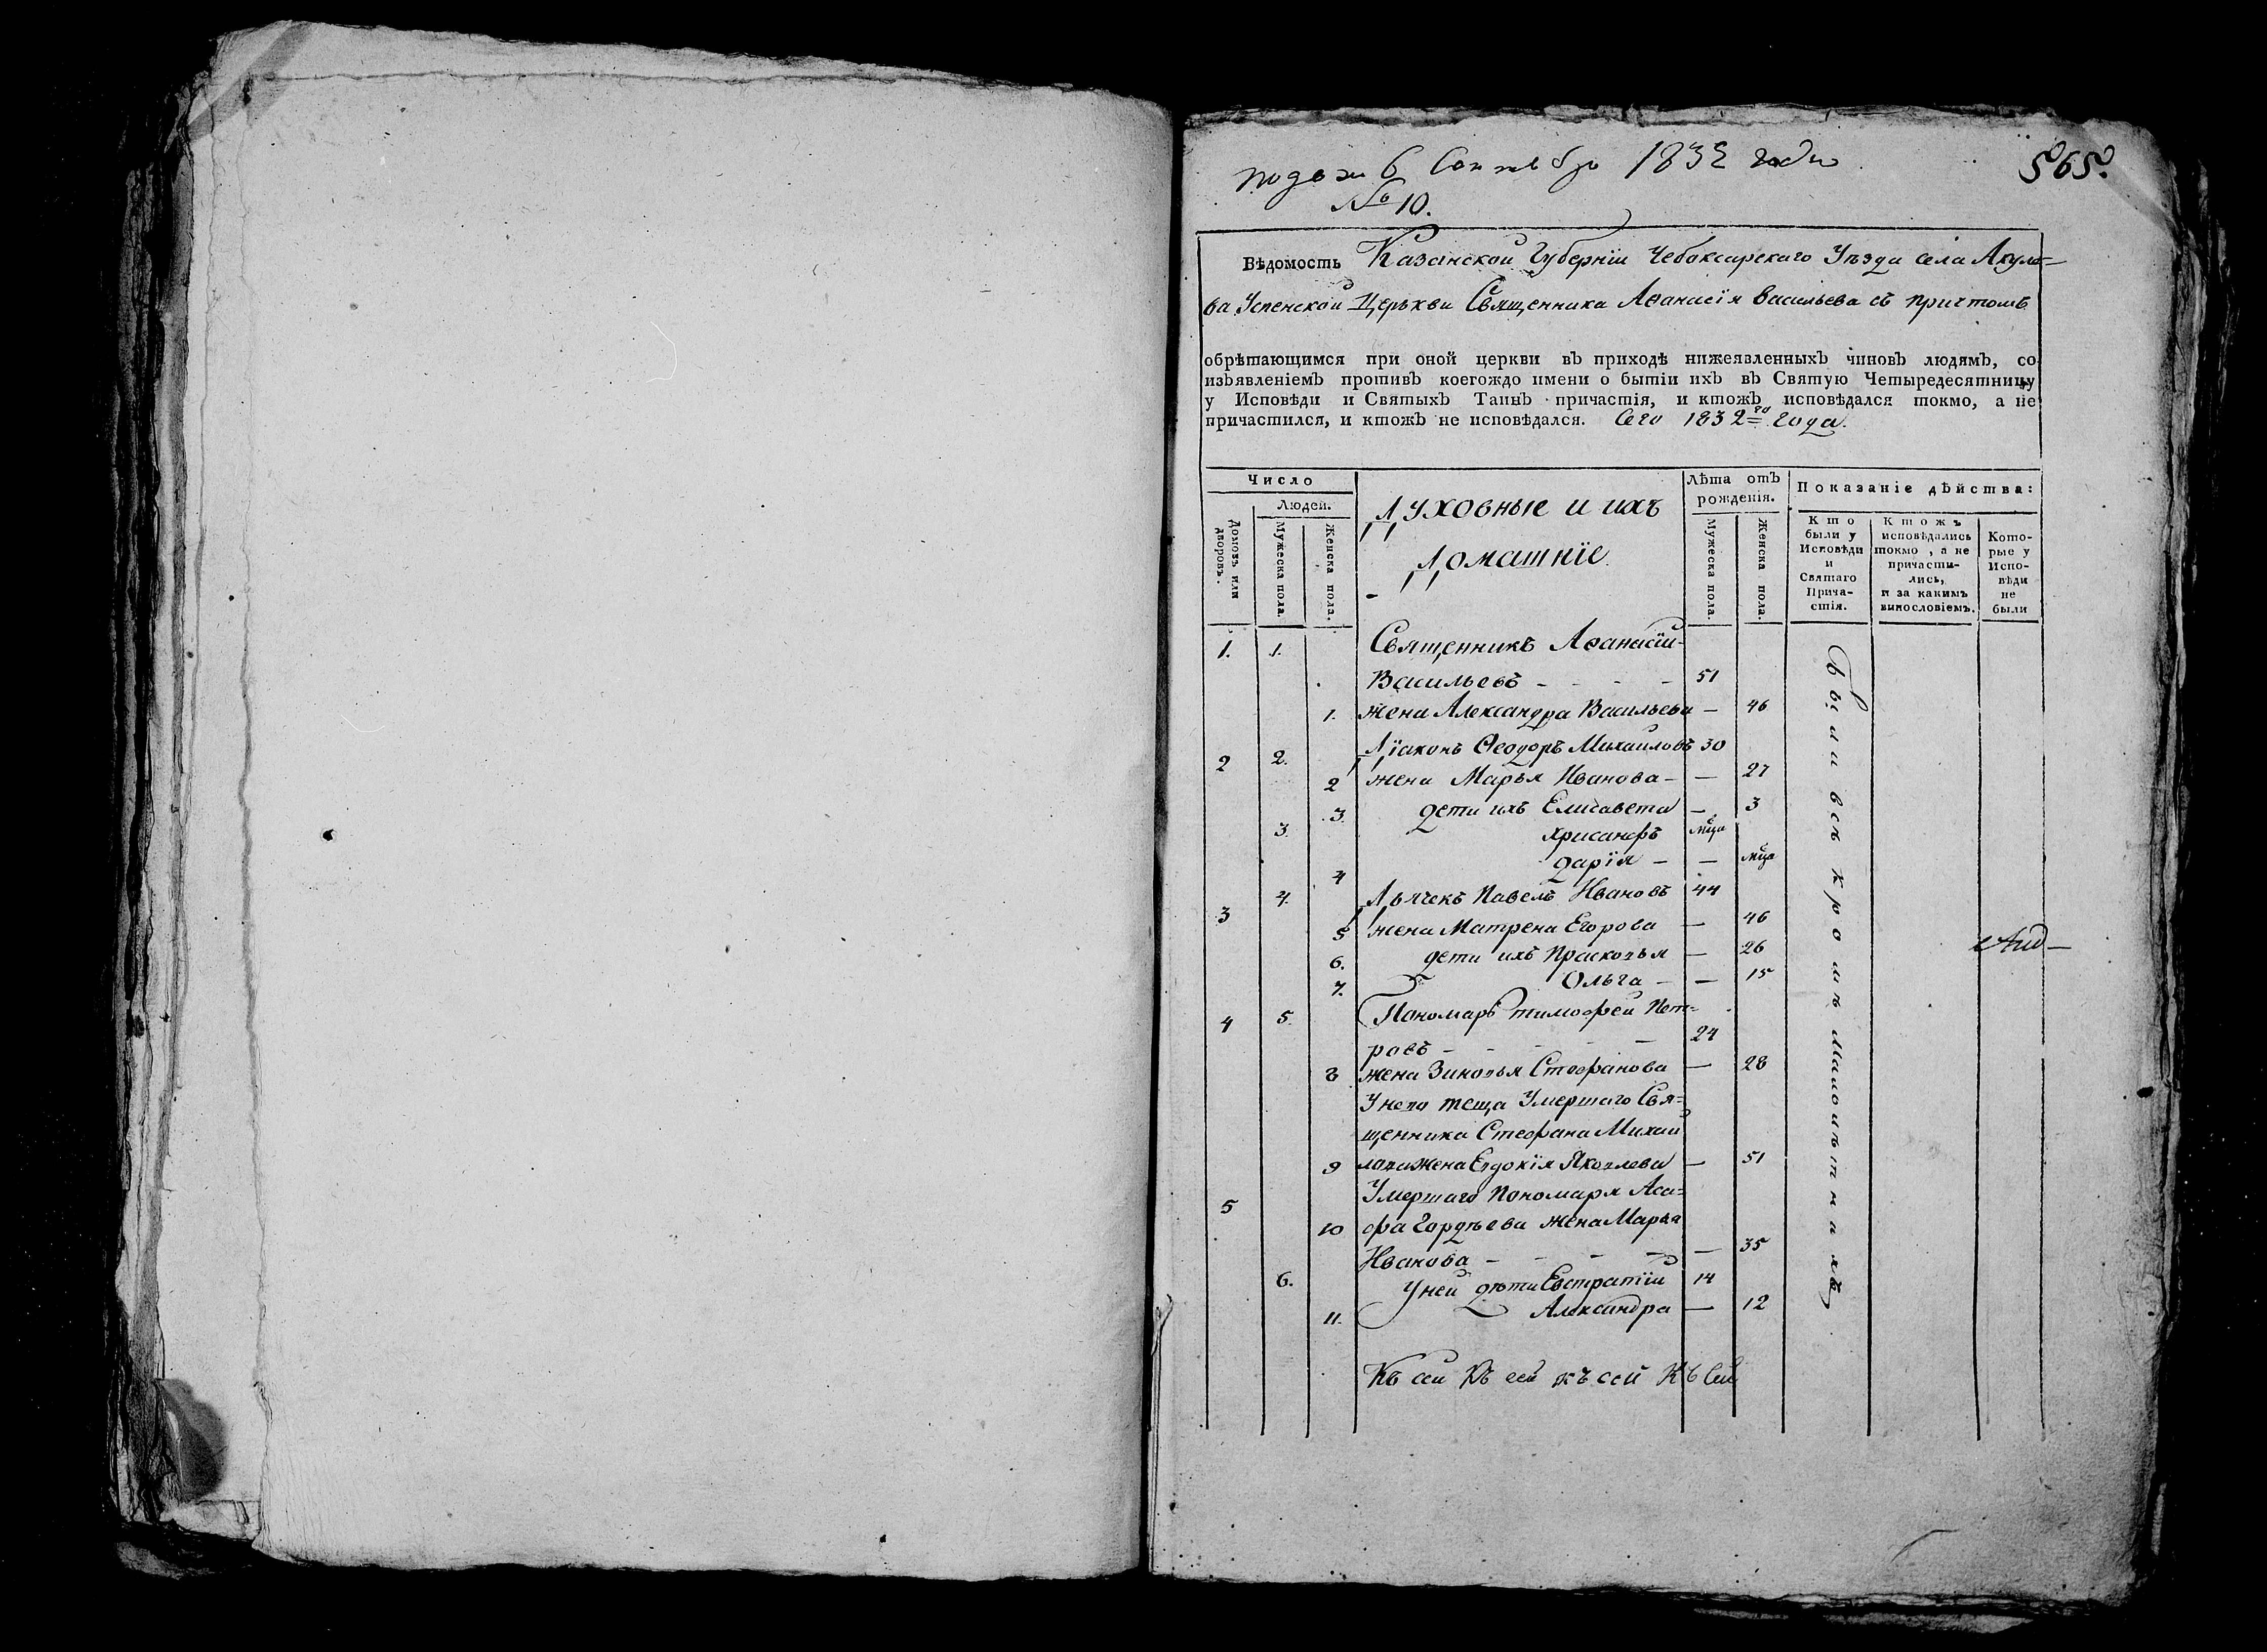 6 Сентября 1832 года
565.
№ 10.
Вѣдомость Казанской Губернїи Чебоксарскаго Уѣзда села Акуле-
ва Успенской Церькви Священника Аѳанасїя Васильева съ причтомъ
обрѣтающимся при оной церкви въ приходѣ нижеявленныхъ чиновъ людямъ, со
изъявленіемъ противъ коегождо имени о бытіи ихъ въ Святую Четыредесятницу
у Исповѣди и Святыхъ Таинъ причастія, и ктожъ исповѣдался токмо, а не
причастился, и ктожъ не исповѣдался. Сего 1832го года.
Число
Людей.
Домовъ или дворовъ.
Мужеска пола.
Женска пола.
Духовные и ихъ
Домашнїе
Лѣта отъ
рожденія.
Мужеска пола.
Женска пола.
Показаніе дѣйства:
Кто
были у
Исповѣди
и
Святаго
Прича-
стія.
Ктожъ
исповѣдались
токмо, а не
причасти-
лись,
и за какимъ
винословіемъ.
Кото-
рые у
Испо-
вѣди
не
были
1. 1. Священникъ Аѳанасїй
Васильевъ - - - - 51
1. жена Александра Васильева — 46
2 2. Дїаконъ Ѳеодоръ Михайловъ 30
2 жена Марья Иванова - — 27
3. дети ихъ Елисавета — 3
3. Хрисанфъ мца
4 Дарїя - — мца
3 4. Дьячекъ Павелъ Ивановъ 44
5 жена Матрена Егорова — 46
6. дети ихъ Прасковья — 26
7. Ольга - — 15
4 5. Пономарь Тимофей Пет-
ровъ - - - - — 24
8 жена Зиновья Стефанова — 28
У него теща Умершаго Свя-
щенника Стефана Михай
9 лова жена Евдокїя Яковлева — 51
5 Умершаго Пономаря Аса-
10 фа Гордѣева жена Марья
Иванова - - - - — 35
6. У ней дѣти Евстратїй 14
11. Александра — 12
Были всѣ кромѣ малолѣтныхъ
Къ сей къ сей къ сей Къ сей